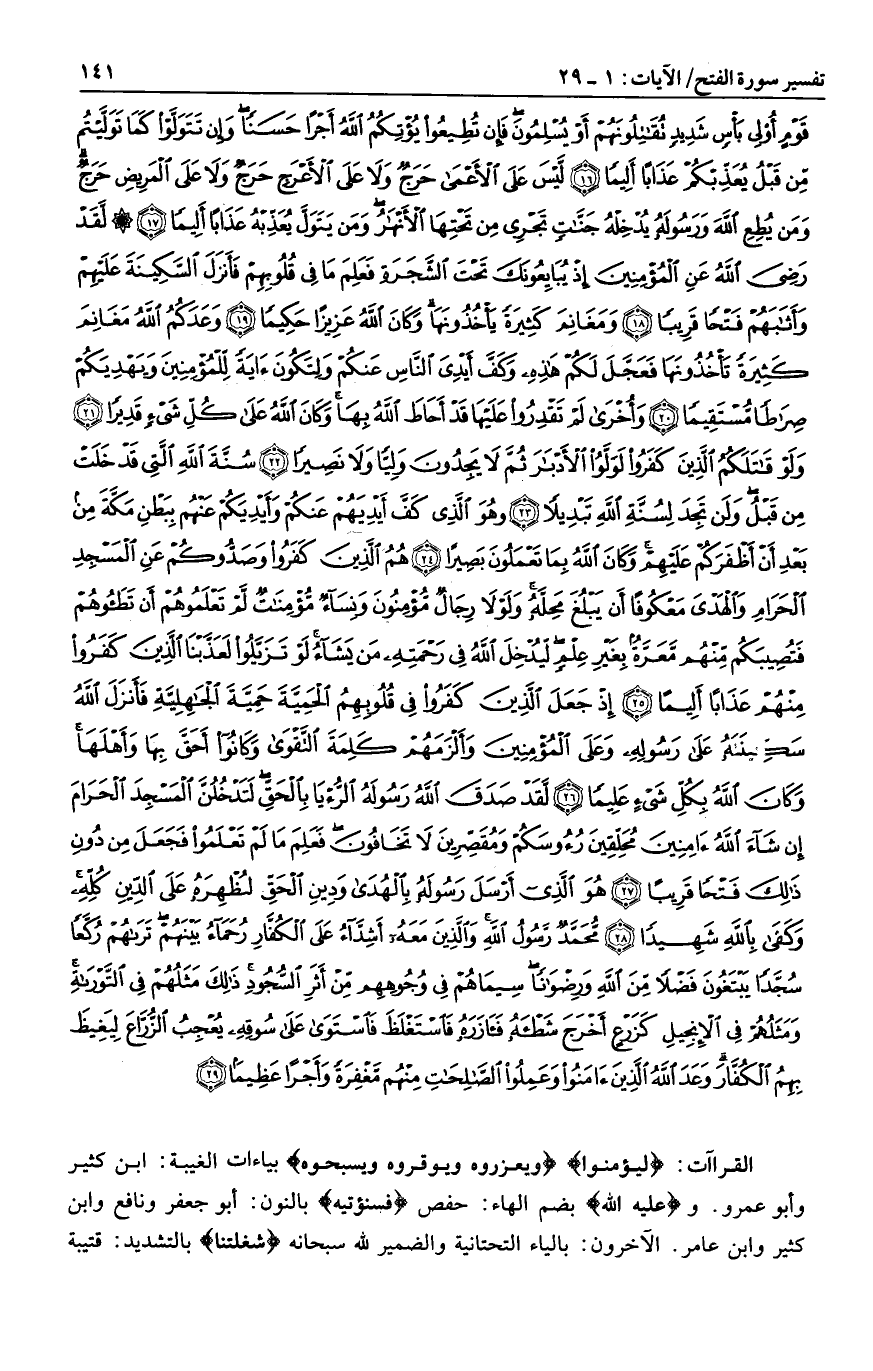 تفسير سورة الفتح/ الآيات: ١ ـ ٢٩ ١٤١
قَوْمٍ أُوْلِى بَأْسٍ شَدِيدٍ تُقَٰتِلُونَهُمْ أَوْ يُسْلِمُونَۖ فَإِن تُطِيعُوا۟ يُؤْتِكُمُ ٱللَّهُ أَجْرًا حَسَنًاۖ وَإِن تَتَوَلَّوْا۟ كَمَا تَوَلَّيْتُم
مِّن قَبْلُ يُعَذِّبْكُمْ عَذَابًا أَلِيمًا ﴿١٦﴾ لَّيْسَ عَلَى ٱلْأَعْمَىٰ حَرَجٌ وَلَا عَلَى ٱلْأَعْرَجِ حَرَجٌ وَلَا عَلَى ٱلْمَرِيضِ حَرَجٌۗ
وَمَن يُطِعِ ٱللَّهَ وَرَسُولَهُۥ يُدْخِلْهُ جَنَّٰتٍ تَجْرِى مِن تَحْتِهَا ٱلْأَنْهَٰرُۖ وَمَن يَتَوَلَّ يُعَذِّبْهُ عَذَابًا أَلِيمًا ﴿١٧﴾ ۞ لَّقَدْ
رَضِىَ ٱللَّهُ عَنِ ٱلْمُؤْمِنِينَ إِذْ يُبَايِعُونَكَ تَحْتَ ٱلشَّجَرَةِ فَعَلِمَ مَا فِى قُلُوبِهِمْ فَأَنزَلَ ٱلسَّكِينَةَ عَلَيْهِمْ
وَأَثَٰبَهُمْ فَتْحًا قَرِيبًا ﴿١٨﴾ وَمَغَانِمَ كَثِيرَةً يَأْخُذُونَهَاۗ وَكَانَ ٱللَّهُ عَزِيزًا حَكِيمًا ﴿١٩﴾ وَعَدَكُمُ ٱللَّهُ مَغَانِمَ
كَثِيرَةً تَأْخُذُونَهَا فَعَجَّلَ لَكُمْ هَٰذِهِۦ وَكَفَّ أَيْدِىَ ٱلنَّاسِ عَنكُمْ وَلِتَكُونَ ءَايَةً لِّلْمُؤْمِنِينَ وَيَهْدِيَكُمْ
صِرَٰطًا مُّسْتَقِيمًا ﴿٢٠﴾ وَأُخْرَىٰ لَمْ تَقْدِرُوا۟ عَلَيْهَا قَدْ أَحَاطَ ٱللَّهُ بِهَاۚ وَكَانَ ٱللَّهُ عَلَىٰ كُلِّ شَىْءٍ قَدِيرًا ﴿٢١﴾
وَلَوْ قَٰتَلَكُمُ ٱلَّذِينَ كَفَرُوا۟ لَوَلَّوُا۟ ٱلْأَدْبَٰرَ ثُمَّ لَا يَجِدُونَ وَلِيًّا وَلَا نَصِيرًا ﴿٢٢﴾ سُنَّةَ ٱللَّهِ ٱلَّتِى قَدْ خَلَتْ
مِن قَبْلُۖ وَلَن تَجِدَ لِسُنَّةِ ٱللَّهِ تَبْدِيلًا ﴿٢٣﴾ وَهُوَ ٱلَّذِى كَفَّ أَيْدِيَهُمْ عَنكُمْ وَأَيْدِيَكُمْ عَنْهُم بِبَطْنِ مَكَّةَ مِنۢ
بَعْدِ أَنْ أَظْفَرَكُمْ عَلَيْهِمْۚ وَكَانَ ٱللَّهُ بِمَا تَعْمَلُونَ بَصِيرًا ﴿٢٤﴾ هُمُ ٱلَّذِينَ كَفَرُوا۟ وَصَدُّوكُمْ عَنِ ٱلْمَسْجِدِ
ٱلْحَرَامِ وَٱلْهَدْىَ مَعْكُوفًا أَن يَبْلُغَ مَحِلَّهُۥۚ وَلَوْلَا رِجَالٌ مُّؤْمِنُونَ وَنِسَآءٌ مُّؤْمِنَٰتٌ لَّمْ تَعْلَمُوهُمْ أَن تَطَـُٔوهُمْ
فَتُصِيبَكُم مِّنْهُم مَّعَرَّةٌۢ بِغَيْرِ عِلْمٍۖ لِّيُدْخِلَ ٱللَّهُ فِى رَحْمَتِهِۦ مَن يَشَآءُۚ لَوْ تَزَيَّلُوا۟ لَعَذَّبْنَا ٱلَّذِينَ كَفَرُوا۟
مِنْهُمْ عَذَابًا أَلِيمًا ﴿٢٥﴾ إِذْ جَعَلَ ٱلَّذِينَ كَفَرُوا۟ فِى قُلُوبِهِمُ ٱلْحَمِيَّةَ حَمِيَّةَ ٱلْجَٰهِلِيَّةِ فَأَنزَلَ ٱللَّهُ
سَكِينَتَهُۥ عَلَىٰ رَسُولِهِۦ وَعَلَى ٱلْمُؤْمِنِينَ وَأَلْزَمَهُمْ كَلِمَةَ ٱلتَّقْوَىٰ وَكَانُوٓا۟ أَحَقَّ بِهَا وَأَهْلَهَاۚ
وَكَانَ ٱللَّهُ بِكُلِّ شَىْءٍ عَلِيمًا ﴿٢٦﴾ لَّقَدْ صَدَقَ ٱللَّهُ رَسُولَهُ ٱلرُّءْيَا بِٱلْحَقِّۖ لَتَدْخُلُنَّ ٱلْمَسْجِدَ ٱلْحَرَامَ
إِن شَآءَ ٱللَّهُ ءَامِنِينَ مُحَلِّقِينَ رُءُوسَكُمْ وَمُقَصِّرِينَ لَا تَخَافُونَۖ فَعَلِمَ مَا لَمْ تَعْلَمُوا۟ فَجَعَلَ مِن دُونِ
ذَٰلِكَ فَتْحًا قَرِيبًا ﴿٢٧﴾ هُوَ ٱلَّذِىٓ أَرْسَلَ رَسُولَهُۥ بِٱلْهُدَىٰ وَدِينِ ٱلْحَقِّ لِيُظْهِرَهُۥ عَلَى ٱلدِّينِ كُلِّهِۦۚ
وَكَفَىٰ بِٱللَّهِ شَهِيدًا ﴿٢٨﴾ مُّحَمَّدٌ رَّسُولُ ٱللَّهِۚ وَٱلَّذِينَ مَعَهُۥٓ أَشِدَّآءُ عَلَى ٱلْكُفَّارِ رُحَمَآءُ بَيْنَهُمْۖ تَرَىٰهُمْ رُكَّعًا
سُجَّدًا يَبْتَغُونَ فَضْلًا مِّنَ ٱللَّهِ وَرِضْوَٰنًاۖ سِيمَاهُمْ فِى وُجُوهِهِم مِّنْ أَثَرِ ٱلسُّجُودِۚ ذَٰلِكَ مَثَلُهُمْ فِى ٱلتَّوْرَىٰةِۚ
وَمَثَلُهُمْ فِى ٱلْإِنجِيلِ كَزَرْعٍ أَخْرَجَ شَطْـَٔهُۥ فَـَٔازَرَهُۥ فَٱسْتَغْلَظَ فَٱسْتَوَىٰ عَلَىٰ سُوقِهِۦ يُعْجِبُ ٱلزُّرَّاعَ لِيَغِيظَ
بِهِمُ ٱلْكُفَّارَۗ وَعَدَ ٱللَّهُ ٱلَّذِينَ ءَامَنُوا۟ وَعَمِلُوا۟ ٱلصَّٰلِحَٰتِ مِنْهُم مَّغْفِرَةً وَأَجْرًا عَظِيمًۢا ﴿٢٩﴾
القراآت: ﴿ليؤمنوا﴾ ﴿ويعزروه ويوقروه ويسبحوه﴾ بياءات الغيبة: ابن كثير
وأبو عمرو. و ﴿عليه الله﴾ بضم الهاء: حفص ﴿فسنؤتيه﴾ بالنون: أبو جعفر ونافع وابن
كثير وابن عامر. الآخرون: بالياء التحتانية والضمير لله سبحانه ﴿شغلتنا﴾ بالتشديد: قتيبة